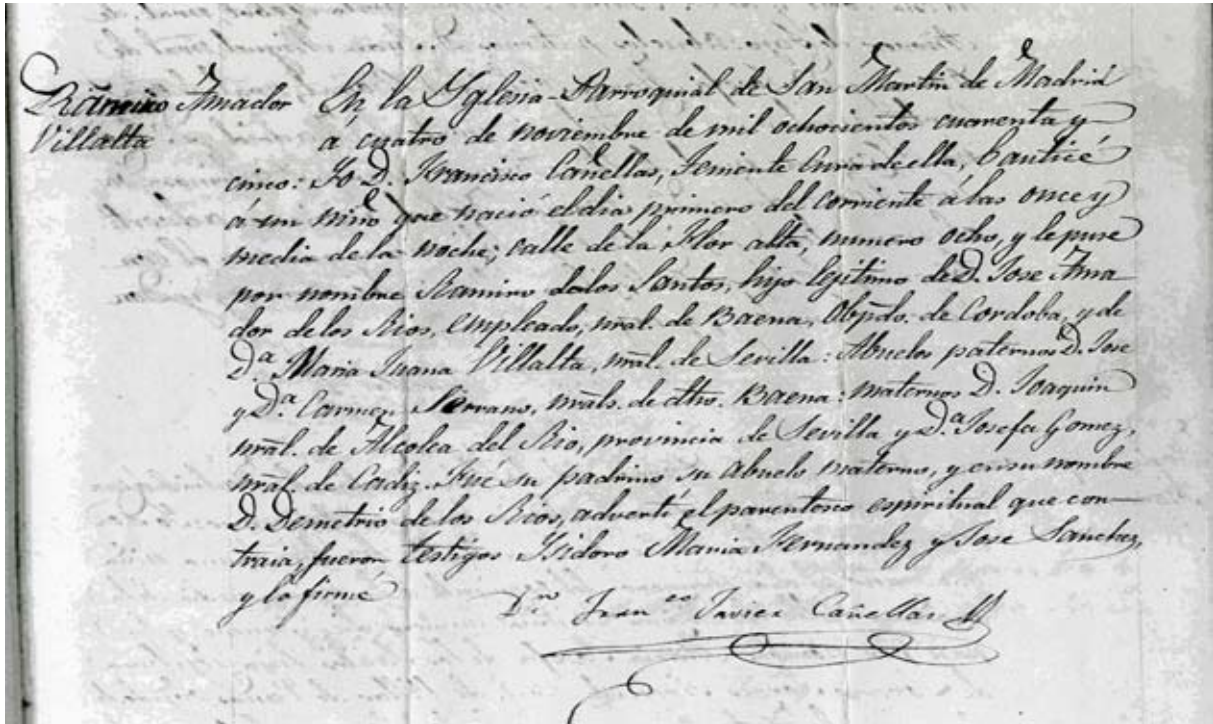 Ramiro Amador
Villalta
En la Yglesia Parroquial de San Martin de Madrid
a cuatro de noviembre de mil ochocientos cuarenta y
cinco: Yo D. Francisco Cañellas, Teniente Cura de ella, bauticé
á un niño que nació el dia primero del corriente á las once y
media de la noche; calle de la Flor alta, numero ocho, y le puse
por nombre Ramiro delos Santos, hijo legitimo de D. Jose Ama-
dor de los Rios, empleado, nral. de Baena, Obpdo. de Cordoba, y de
D.ª Maria Juana Villalta, nral. de Sevilla: Abuelos paternos D. Jose
y D.ª Carmen Serrano, nrals. de dho. Baena: maternos D. Joaquin
nral. de Alcolea del Rio, provincia de Sevilla y D.ª Josefa Gomez,
nral. de Cadiz. Fué su padrino su abuelo materno, y en su nombre
D. Demetrio de los Rios, advertí el parentesco espiritual que con-
traia, fueron testigos Isidoro Maria Fernandez y Jose Sanchez,
y lo firmé
Dn Franco Javier Cañellas